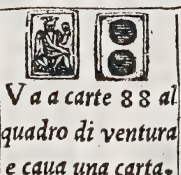 V a a carte 88 al
quadro di ventura
e caua una carta.